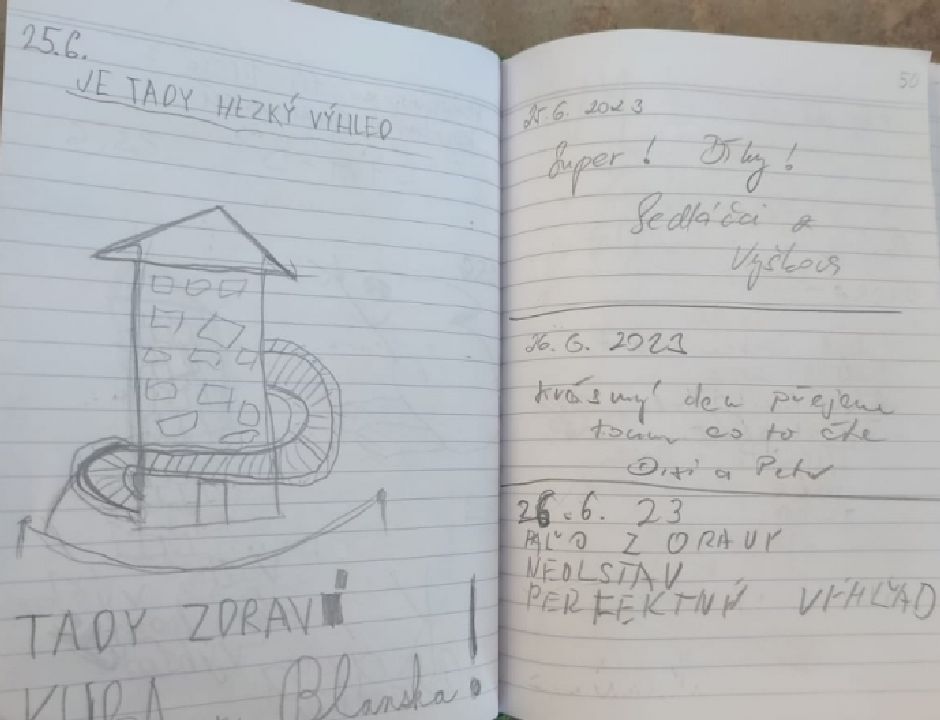 25.6.
JE TADY HEZKÝ VÝHLED
TADY ZDRAVÍ !
KUBA Blanska
50
25.6. 2023
Super! Díky!
Sedláčci z
Vyškova
26.6. 2023
krásný den přejeme
tomu co to čte
a Petr
26.6. 23
PAĽO Z ORAVY
NEOLSTAV
PERFEKTNÝ VÝHĽAD